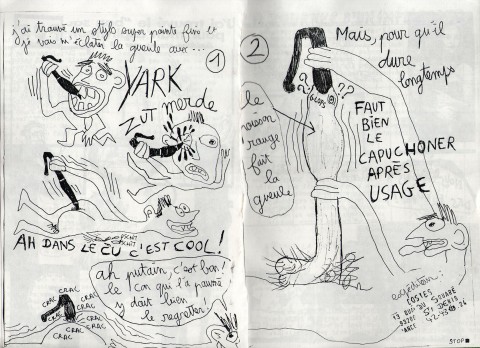 j'ai trouvé un stylo super pointe fine et
je vais m'éclater la gueule avec...
1
YARK
ZUT merde
PSCHIT
PSCHIT
AH DANS LE CU C'EST COOL!
ah putain, c'est bon!
le con qui l'a paumé
y doit bien
le regretter!
CRAC
CRAC
CRAC
CRAC
CRAC
CRAC
CRAC
2
Mais, pour qu'il
dure
longtemps
??
??
GLING
le
rouge
fait
la
gueule
FAUT
BIEN
LE
CAPUCHONER
APRÈS
USAGE
expéditeur:
POSTES
DU SQUARE
ST DENIS
STOP